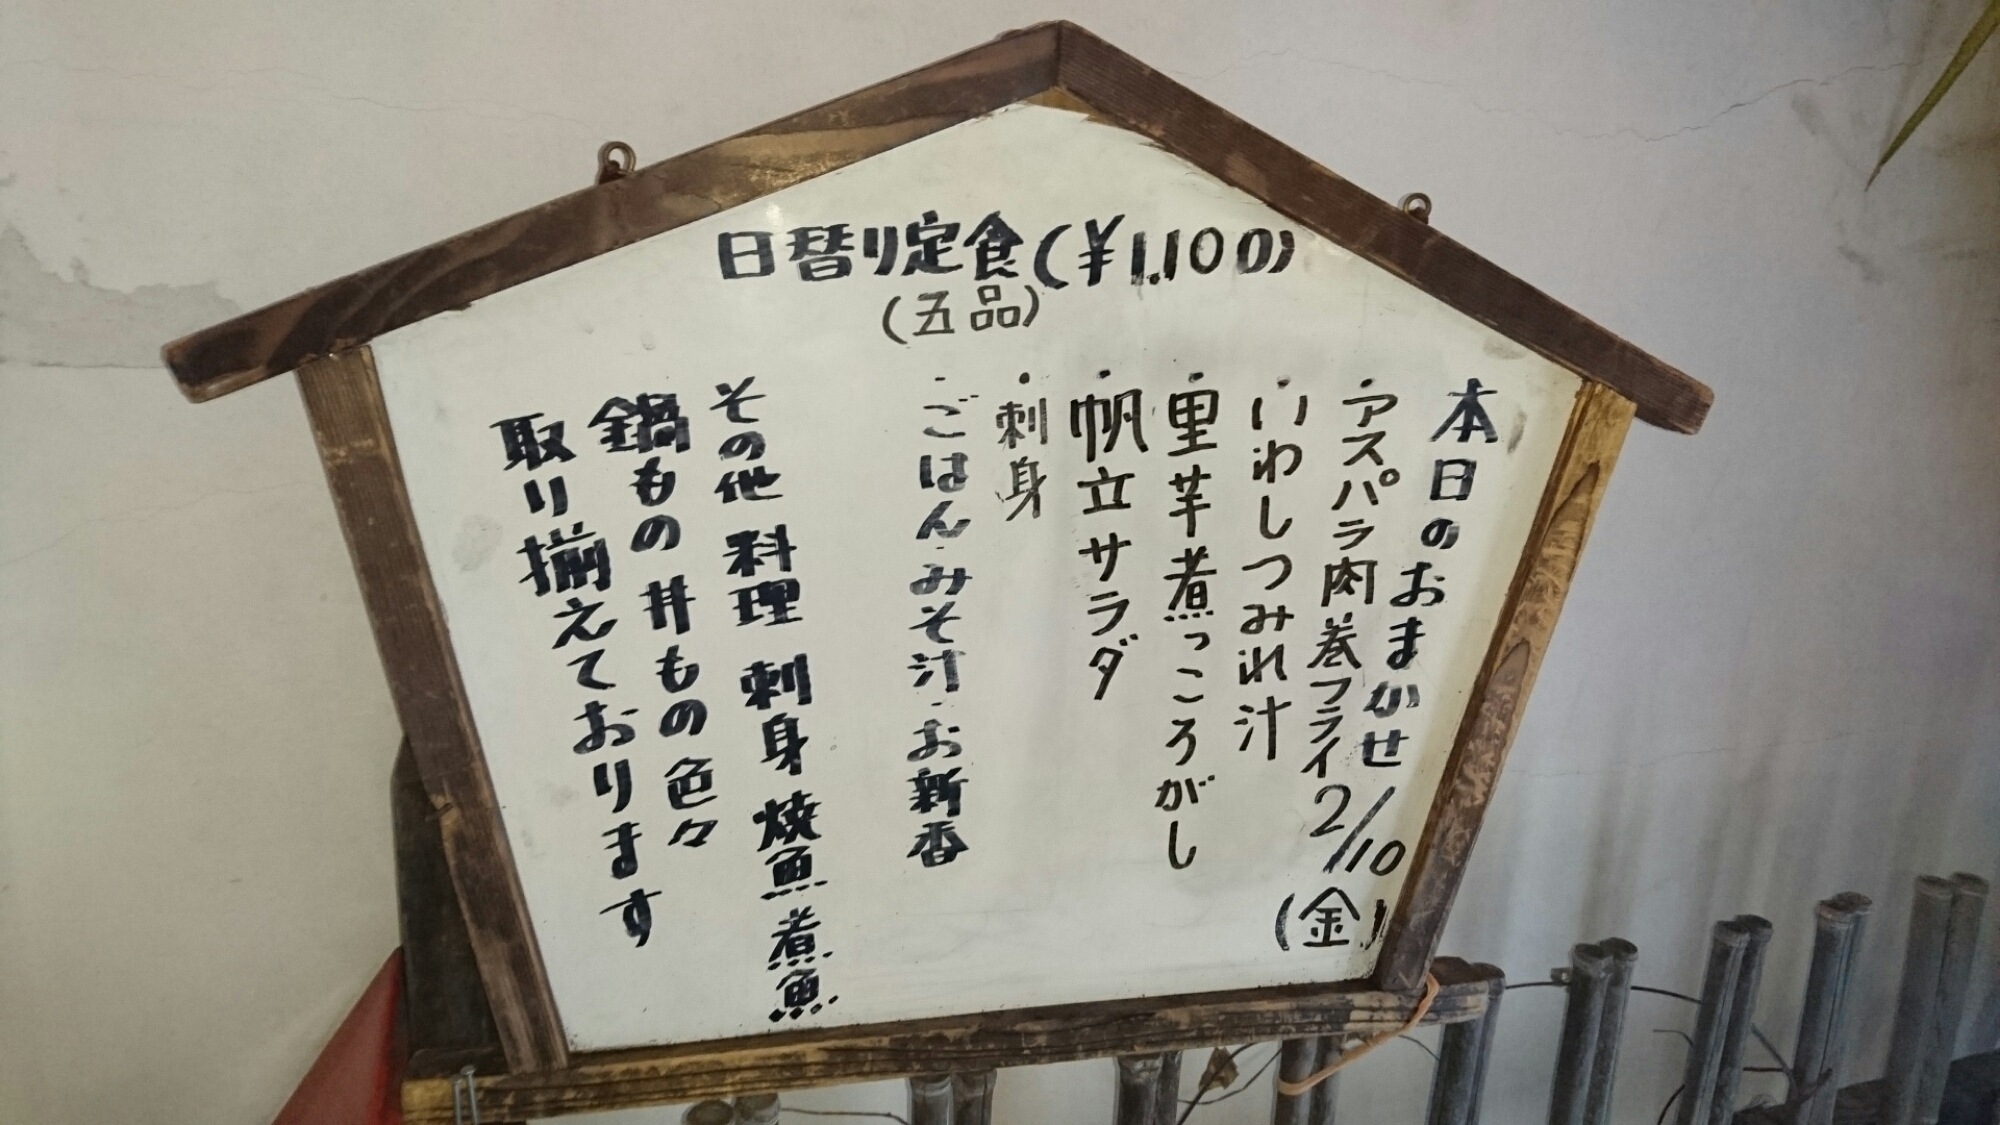 日替り定食(¥1,100)
(五品)
本日のおまかせ 2/10(金)
・アスパラ肉巻フライ
・いわしつみれ汁
・里芋煮っころがし
・帆立サラダ
・刺身
・ごはん・みそ汁・お新香
その他 料理 刺身 焼魚 煮魚
鍋もの 丼もの 色々
取り揃えております